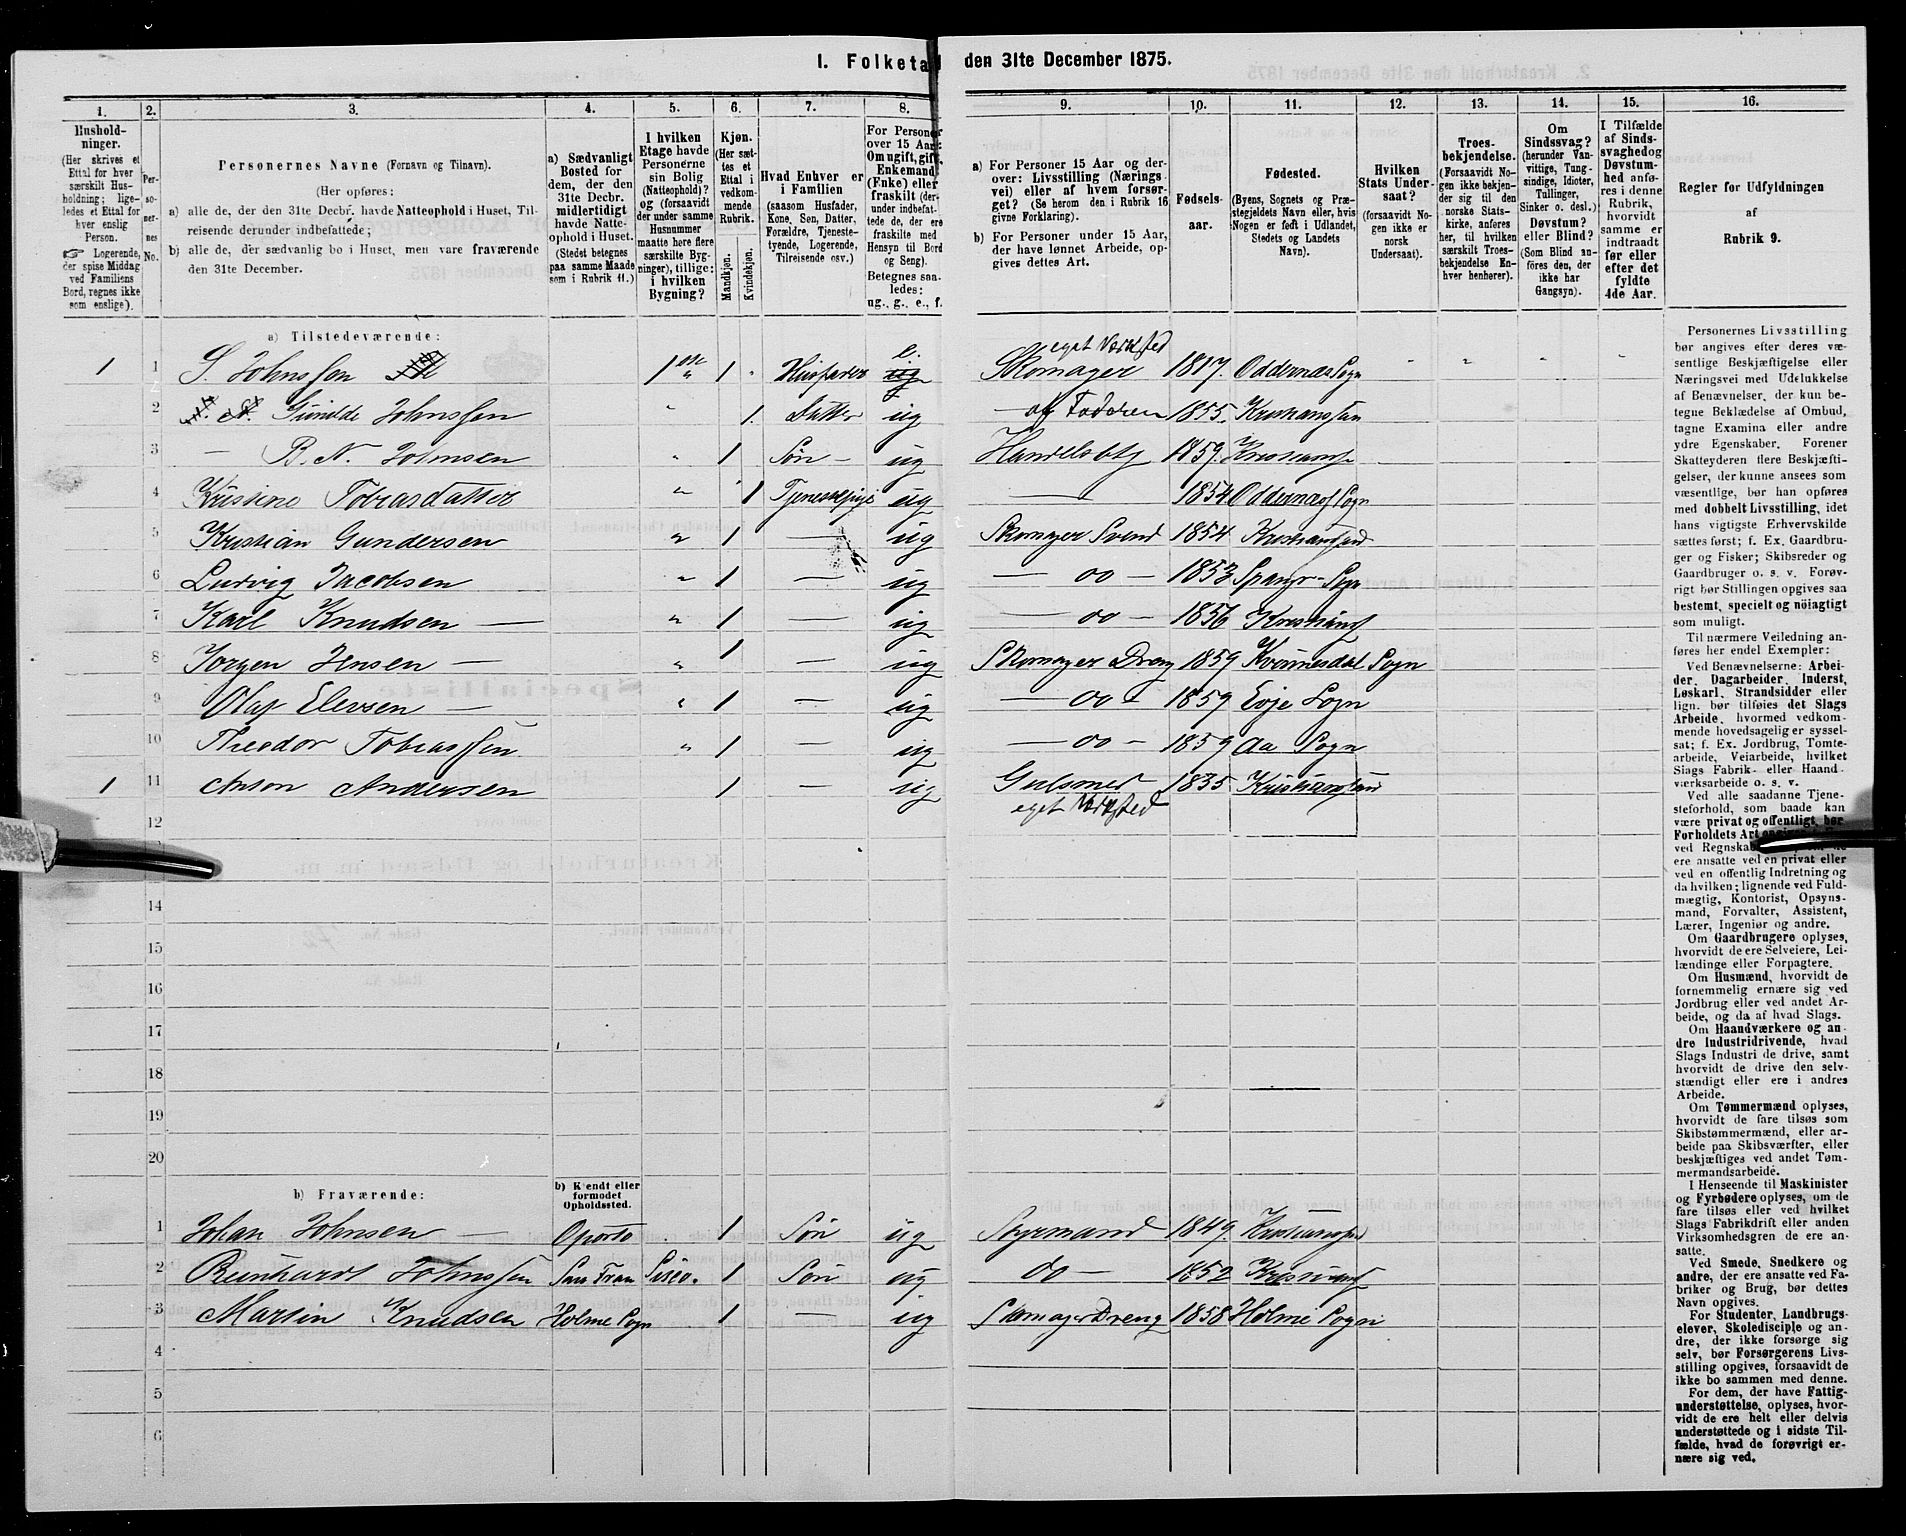 1. Folketal den 31te December 1875.
1. 2. 3. 4. 5. 6. 7. 8. 9. 10. 11. 12. 13. 14. 15. 16.
Hushold-
ninger.
(Her skrives et
Ettal for hver
særskilt Hus-
holdning; lige-
ledes et Ettal for
hver enslig
Person.
☞ Logerende,
der spise Middag
ved Familiens
Bord, regnes ikke
som enslige).
Per-
so-
ner-
nes
No.
Personernes Navne (Fornavn og Tilnavn).
(Her opføres:
a) alle de, der den 31te Decbr. havde Natteophold i Huset, Til-
reisende derunder indbefattede;
b) alle de, der sædvanlig bo i Huset, men vare fraværende
den 31te December.
a) Sædvanligt
Bosted for
dem, der den
31te Decbr.
midlertidigt
havde Natte-
ophold i Huset.
(Stedet betegnes
paa samme Maade
som i Rubrik 11.)
I hvilken
Etage havde
Personerne
sin Bolig
(Natteophold)?
og (forsaavidt
der under samme
Husnummer
maatte høre flere
særskilte Byg-
ninger), tillige:
i hvilken
Bygning?
Kjøn.
(Her sæt-
tes et
Ettal i
vedkom-
mende
Rubrik.
Mandkjøn.
Kvindekjøn.
Hvad Enhver er
i Familien
(saasom Husfader,
Kone, Søn, Datter,
Forældre, Tjeneste-
tyende, Logerende,
Tilreisende osv.)
For Personer
over 15 Aar:
Om ugift, gift,
Enkemand
(Enke) eller
fraskilt (der-
under indbefat-
tede de, der ere
fraskilte med
Hensyn til Bord
og Seng).
Betegnes saa-
ledes:
ug., g., e., f.
a) For Personer 15 Aar og der-
over: Livsstilling (Nærings-
vei) eller af hvem forsør-
get? (Se herom den i Rubrik 16
givne Forklaring).
b) For Personer under 15 Aar,
der have lønnet Arbeide, op-
gives dettes Art.
Fødsels-
aar.
Fødested.
(Byens, Sognets og Præ-
stegjeldets Navn eller, hvis
Nogen er født i Udlandet,
Stedets og Landets
Navn).
Hvilken
Stats Under-
saat?
(forsaavidt No-
gen ikke er
norsk
Undersaat).
Troes-
bekjendelse.
(Forsaavidt No-
gen ikke bekjen-
der sig til den
norske Stats-
kirke, anføres
her, til hvilken
særskilt Troes-
bekjendelse En-
hver henhører).
Om
Sindssvag?
(herunder Van-
vittige, Tung-
sindige, Idioter,
Tullinger,
Sinker o. desl.)
Døvstum?
eller Blind?
(Som Blind an-
føres den, der
ikke har
Gangsyn).
I Tilfælde
af Sinds-
svaghed og
Døvstum-
hed anfø-
res i denne
Rubrik,
hvorvidt
samme er
indtraadt
før eller
efter det
fyldte
4de Aar.
Regler for Udfyldningen
af
Rubrik 9.
a) Tilstedeværende:
1 1 S. Johnssen 1 1 Husfader e. Skomager eget Værksted 1817. Oddernæs Sogn
2 Gunilde Johnssen 1. Datter ug af Faderen 1855. Kristianssan
3 — B. N. Johnsen 1 Søn — ug Handelsbtj 1859. Kristians
4 Kristine Tobiasdatter 1 Tjenestepige ug — 1854. Oddernæs Sogn
5 Kristian Gundersen 1 — ug Skomager Svend 1854 Kristiansand
6 Ludvig Jacobsen 1 — ug — oo — 1853 Sogn
7 Karl Knudsen — 1 — ug — oo — 1856 Kristians
8 Jorgen Jensen — 1 — ug Skomager Dreng 1859 Kvinnesdal Sogn
9 Olaf Elevsen — 1 — ug — oo — 1859 Evje Sogn
10 Theodor Tobiassen 1 — ug — oo — 1859 Aa Sogn
1 11 Anton Andersen 1 — ug Gulsmed 1835 Kristiansan
eget Værksted
12
14
15
16
17
18
19
20
b) Fraværende:
b) Kjendt eller
formodet
Opholdssted.
1 Johan Johnsen — Oporto 1 Søn ug Styrmand 1849. Kristians
2 Reinhardt Johnssen San Fran Sisco. 1 Søn ug do — 1852 Kristians
3 Martin Knudsen Holme Sogn 1 — ug Skomager Dreng 1858 Holme Sogn
4
5
6
Personernes Livsstilling
bør angives efter deres væ-
sentlige Beskjæftigelse eller
Næringsvei med Udelukkelse
af Benævnelser, der kun be-
tegne Beklædelse af Ombud,
tagne Examina eller andre
ydre Egenskaber. Forener
Skatteyderen flere Beskjæfti-
gelser, der kunne ansees som
væsentlige, bør han opføres
med dobbelt Livsstilling, idet
hans vigtigste Erhvervskilde
sættes først; f. Ex. Gaardbru-
ger og Fisker; Skibsreder og
Gaardbruger o. s. v. Forøv-
rigt bør Stillingen opgives saa
bestemt, specielt og nöiagtigt
som muligt.
Til nærmere Veiledning an-
føres her endel Exempler:
Ved Benævnelserne: Arbei-
der, Dagarbeider, Inderst,
Løskarl, Strandsidder eller
lign. bør tilføies det Slags
Arbeide, hvormed vedkom-
mende hovedsagelig er syssel-
sat; f. Ex. Jordbrug, Tomte-
arbeide, Veiarbeide, hvilket
Slags Fabrik- eller Haand-
værksarbeide o. s. v.
Ved alle saadanne Tjene-
steforhold, som baade kan
være privat og offentligt, bør
Forholdets Art
ved
ere ansatte ved en privat eller
ved en offentlig Indretning og
da hvilken; lignende ved Fuld-
mægtig, Kontorist, Opsyns-
mand, Forvalter, Assistent,
Lærer, Ingeniør og andre.
Om Gaardbrugere oplyses,
hvorvidt de ere Selveiere, Lei-
lændinge eller Forpagtere.
Om Husmænd, hvorvidt de
fornemmelig ernære sig ved
Jordbrug eller ved andet Ar-
beide, og da af hvad Slags.
Om Haandværkere og an-
dre Industridrivende, hvad
Slags Industri de drive, samt
hvorvidt de drive den selv-
stændigt eller ere i andres
Arbeide.
Om Tømmermænd oplyses,
hvorvidt de fare tilsøs som
Skibstømmermænd, eller ar-
beide paa Skibsværfter, eller
beskjæftiges ved andet Tøm-
mermandsarbeide.
I Henseende til Maskinister
og Fyrbødere oplyses, om de
fare tilsøs eller ved hvilket
Slags Fabrikdrift eller anden
Virksomhedsgren de ere an-
satte.
Ved Smede, Snedkere og
andre, der ere ansatte ved Fa-
briker og Brug, bør dettes
Navn opgives.
For Studenter, Landbrugs-
elever, Skoledisciple og an-
dre, der ikke forsørge sig
selv, bør Forsørgerens Livs-
stilling opgives, forsaavidt de
ikke bo sammen med denne.
For dem, der have Fattig-
understøttelse, oplyses, hvor-
vidt de ere helt eller delvis
understøttede og i sidste Til-
fælde, hvad de forøvrigt er-
nære sig ved.